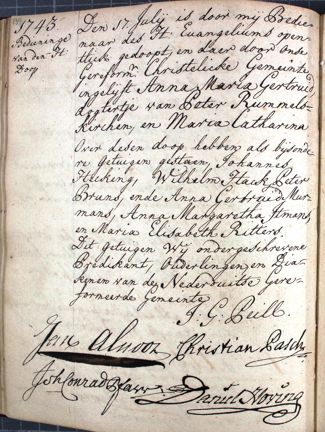 1743
Bedieninge
van den H:
Dop
Den 17 July is door mij Bedie-
naar des H: Evangeliums open-
tlijk gedoopt, en daer door onse
Gereform: Christelicke Gemeinte
ingelijft Anna Maria Gertruid
dogtertje van Peter Rummels-
Kirchen, en Maria Catharina
Over desen doop hebben als bijsonde-
re getuigen gestaen, Johannes
Wilhelm Haeck, Peter
Bruns, ende Anna Gertruid Mur-
mans, Anna Margaretha
en Maria Elisabeth Ritters.
Dit getuigen Wij ondergeschrevene
Predikant, Ouderlingen en Dia-
kenen van de Nederduitse Gere-
formeerde Gemeinte
J: G: Peill.
Jan Christian Pasch
Joh Conrad
Daniel Hoving